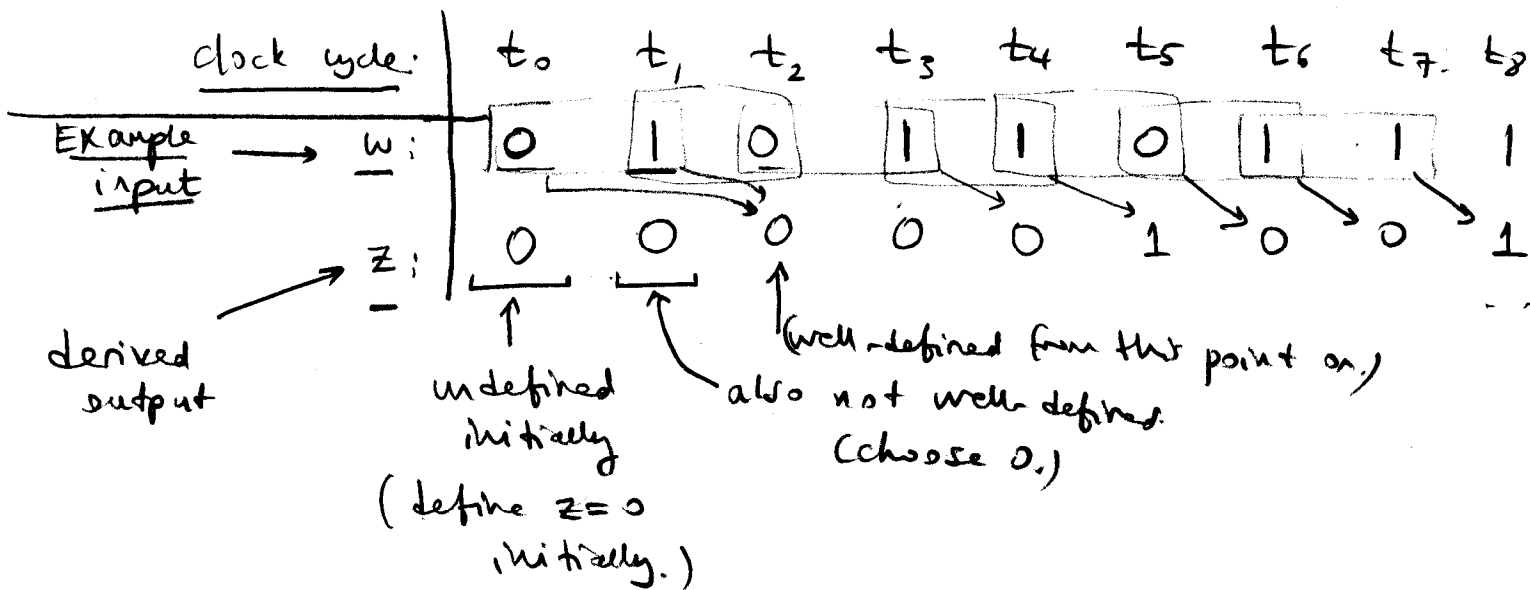 clock cycle: t0 t1 t2 t3 t4 t5 t6 t7. t8
Example input → w: 0 1 0 1 1 0 1 1 1
z: 0 0 0 0 0 1 0 0 1
...
derived
output
undefined
initially
(define z=0
initially.)
also not well-defined.
(choose 0.)
(well-defined from this point on.)